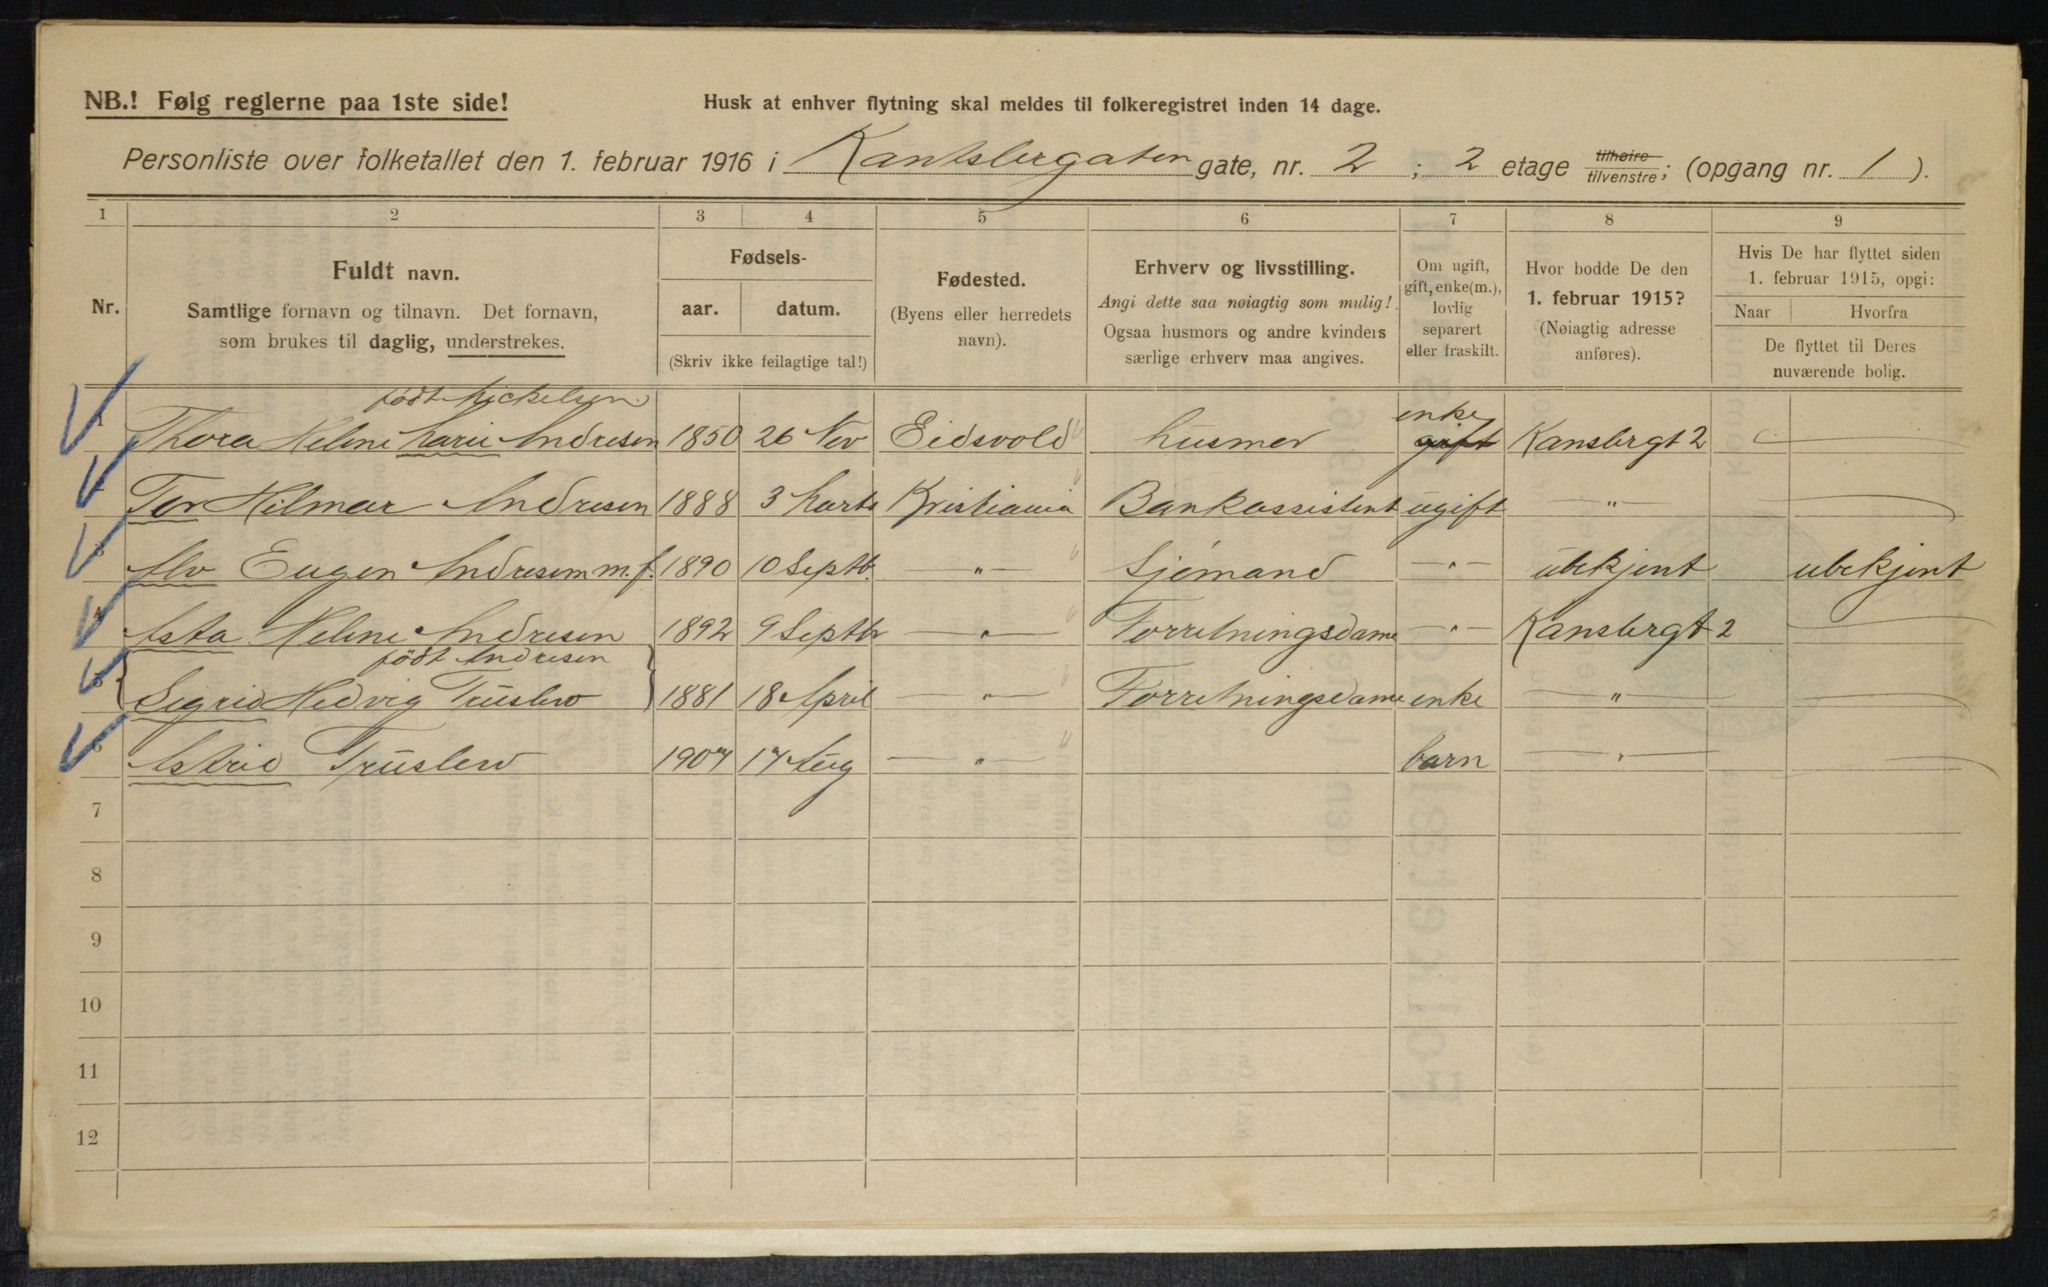 NB.! Følg reglerne paa 1ste side!
Husk at enhver flytning skal meldes til folkeregistret inden 14 dage.
Personliste over folketallet den 1. februar 1916 i Kantsbergaten gate, nr. 2 ; 2 etage tilhøire tilvenstre; (opgang nr. 1 ).
1 2 3 4 5 6 7 8 9
Nr.
Fuldt navn.
Samtlige fornavn og tilnavn. Det fornavn,
som brukes til daglig, understrekes.
Fødsels-
aar. datum.
(Skriv ikke feilagtige tal!)
Fødested.
(Byens eller herredets
navn).
Erhverv og livsstilling.
Angi dette saa nøiagtig som mulig!
Ogsaa husmors og andre kvinders
særlige erhverv maa angives.
Om ugift,
gift, enke(m.),
lovlig
separert
eller fraskilt.
Hvor bodde De den
1. februar 1915?
(Nøiagtig adresse
anføres).
Hvis De har flyttet siden
1. februar 1915, opgi:
Naar Hvorfra
De flyttet til Deres
nuværende bolig.
født Mickelsen enke
1 Thora Heline Marie Andresen 1850 26 Nov Eidsvold husmor gift Kansbergt 2
2 Tor Hilmar Andresen 1888 3 Marts Kristiania Bankassistent ugift "
3 Alv Eugen Andresen m.f. 1890 10 Septb. " Sjömand " ubekjent ubekjent
4 Asta Heline Andresen 1892 9 Septbr " Forretningsdame " Kansbergt 2
født Andresen
5 Sigrid Hedvig Truslew 1881 18 April " Forretningsdame enke "
6 Astrid Truslew 1907 17 Aug " barn "
7
8
9
10
11
12